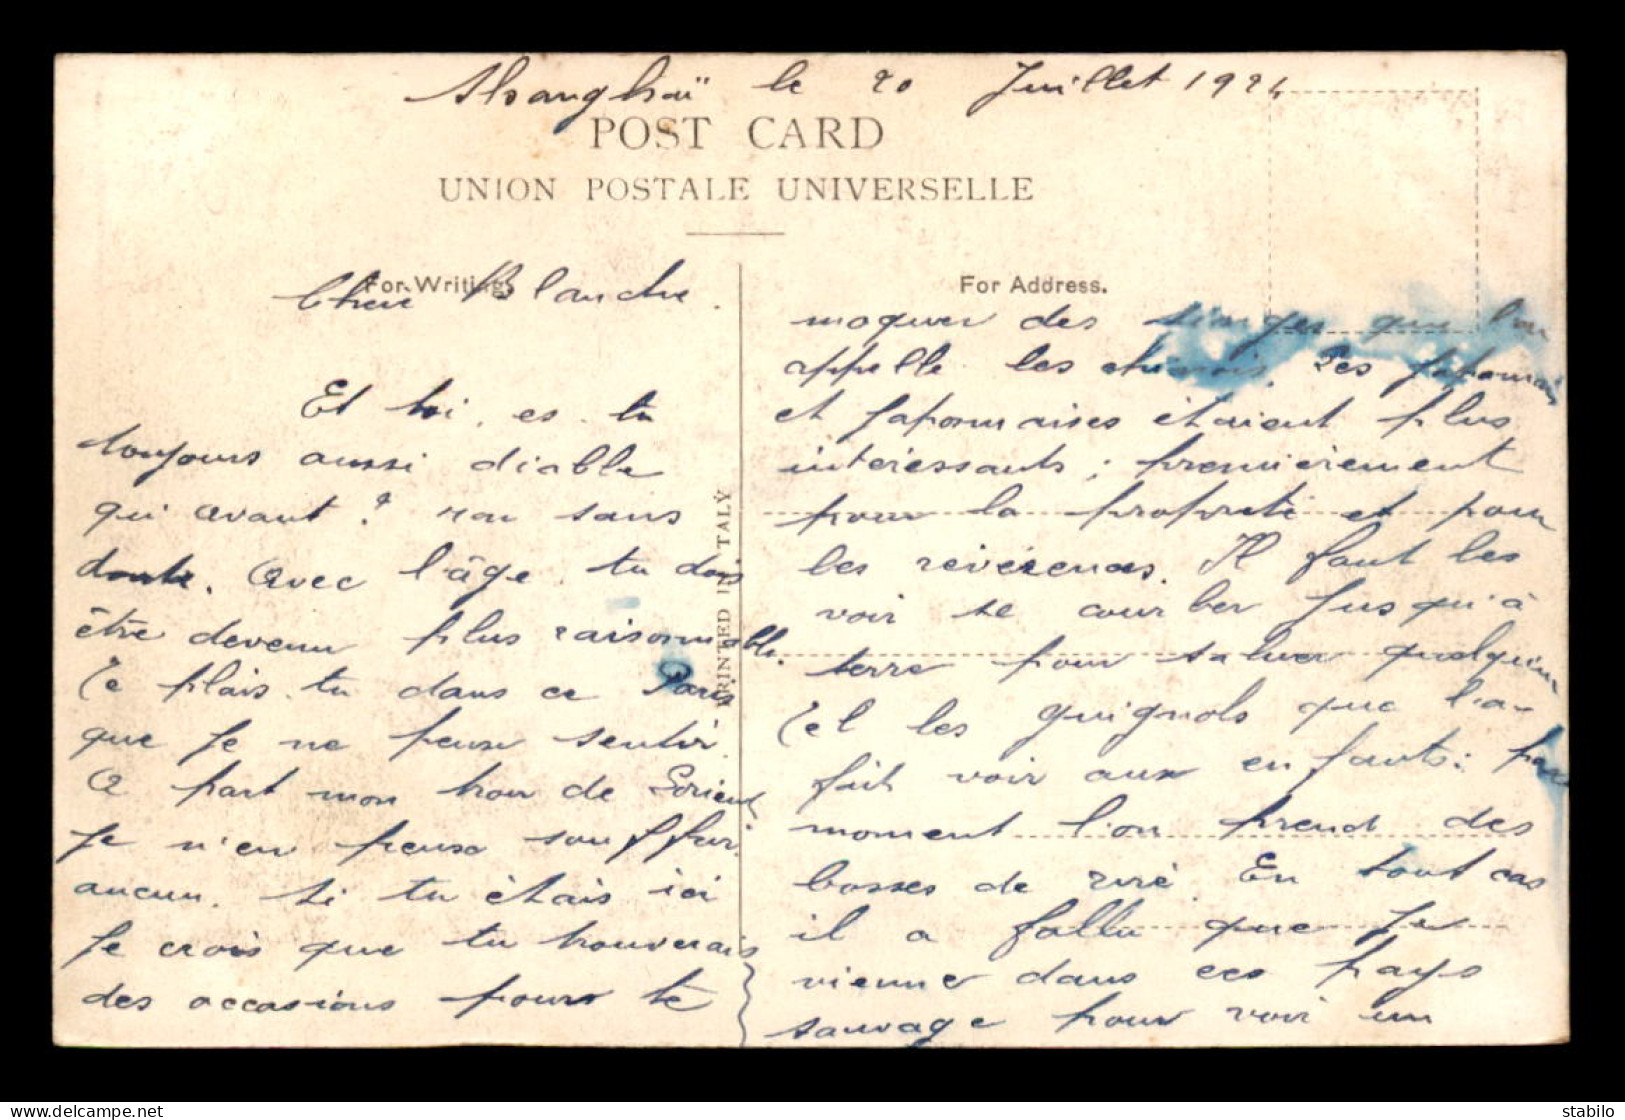 Shanghaï le 20 Juillet 1924
POST CARD
UNION POSTALE UNIVERSELLE
For Writing.
For Address.
PRINTED IN ITALY
Chère Blanche.
Et toi, es tu
toujours aussi diable
qu'avant ? non sans
doute. Avec l'âge, tu dois
être devenu plus raisonnable.
Te plais tu dans ce Paris
que je ne peux sentir.
A part mon trou de Lorient
je n'en peux souffrir
aucun. Si tu étais ici
je crois que tu trouverais
des occasions pour te
moquer des singes que l'on
appelle les chinois. Les Japonais
et Japonnaises étaient plus
intéressants ; premièrement
pour la propreté et pour
les révérences. Il faut les
voir se courber jusqu'à
terre pour saluer quelqu'un
Tel les guignols que l'a-
fait voir aux enfants : par
moment l'on prend des
bosses de rire. En tout cas
il a fallu que je
vienne dans ces pays
sauvage pour voir un
stabilo